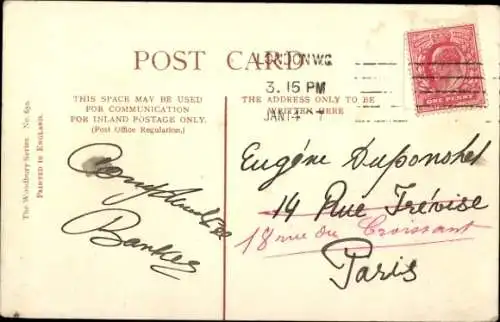 POST CARD
LONDON W.C.
3. 15 PM
JAN 14 7
ONE PENNY
THIS SPACE MAY BE USED
FOR COMMUNICATION
FOR INLAND POSTAGE ONLY.
(Post Office Regulation.)
THE ADDRESS ONLY TO BE
WRITTEN HERE
The Woodbury Series. No. 650.
PRINTED IN ENGLAND.
Eugéne
14 Rue Trévise
18 rue du Croissant
Paris